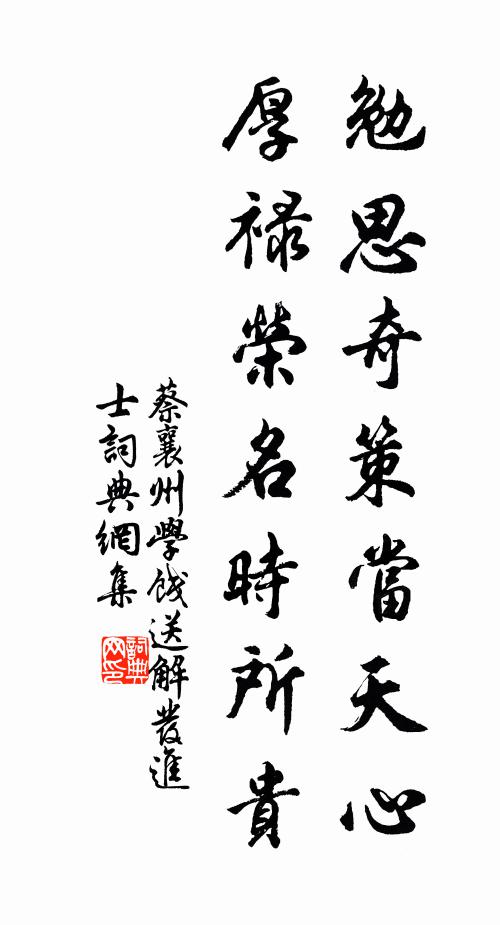 勉思奇策當天心
厚祿榮名時所貴
蔡襄州學餞送解發進
士詞典網集
詞典網印